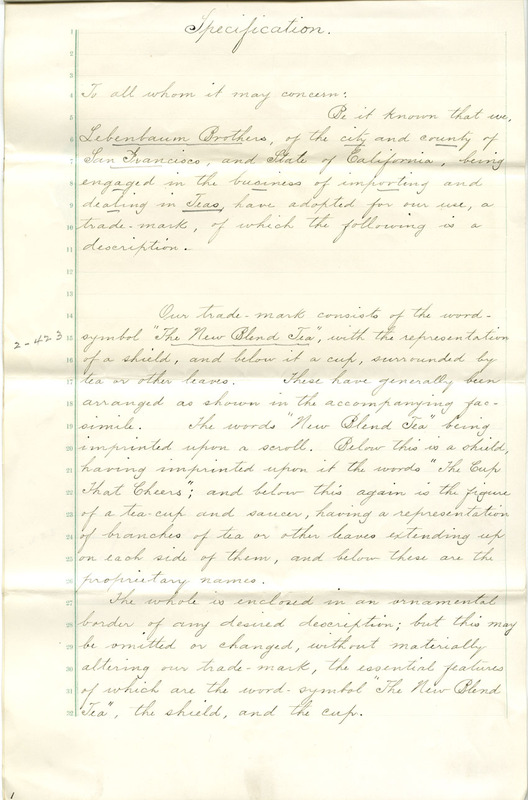 Specification.
To all whom it may concern:
Be it known that we,
Lebenbaum Brothers, of the city and county of
San Francisco, and State of California, being
engaged in the business of importing and
dealing in Teas, have adopted for our use, a
trade-mark, of which the following is a
description.
Our trade-mark consists of the word-
2-423
symbol "The New Blend Tea", with the representation
of a shield, and below it a cup, surrounded by
tea or other leaves. These have generally been
arranged as shown in the accompanying fac-
simile. The words "New Blend Tea" being
imprinted upon a scroll. Below this is a shield,
having imprinted upon it the words "The Cup
That Cheers"; and below this again is the figure
of a tea-cup and saucer, having a representation
of branches of tea or other leaves extending up
on each side of them, and below these are the
proprietary names.
The whole is enclosed in an ornamental
border of any desired description; but this may
be omitted or changed, without materially
altering our trade-mark, the essential features
of which are the word-symbol "The New Blend
Tea", the shield, and the cup.